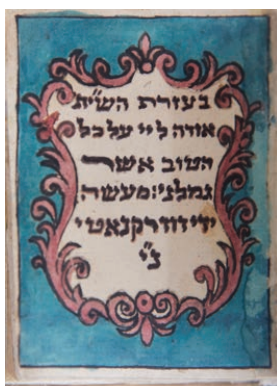 בעזרת השי"ת
אודה ליי על כל
הטוב אשר
גמלני: מעשה
ידי דוד רקנאטי
נ"י